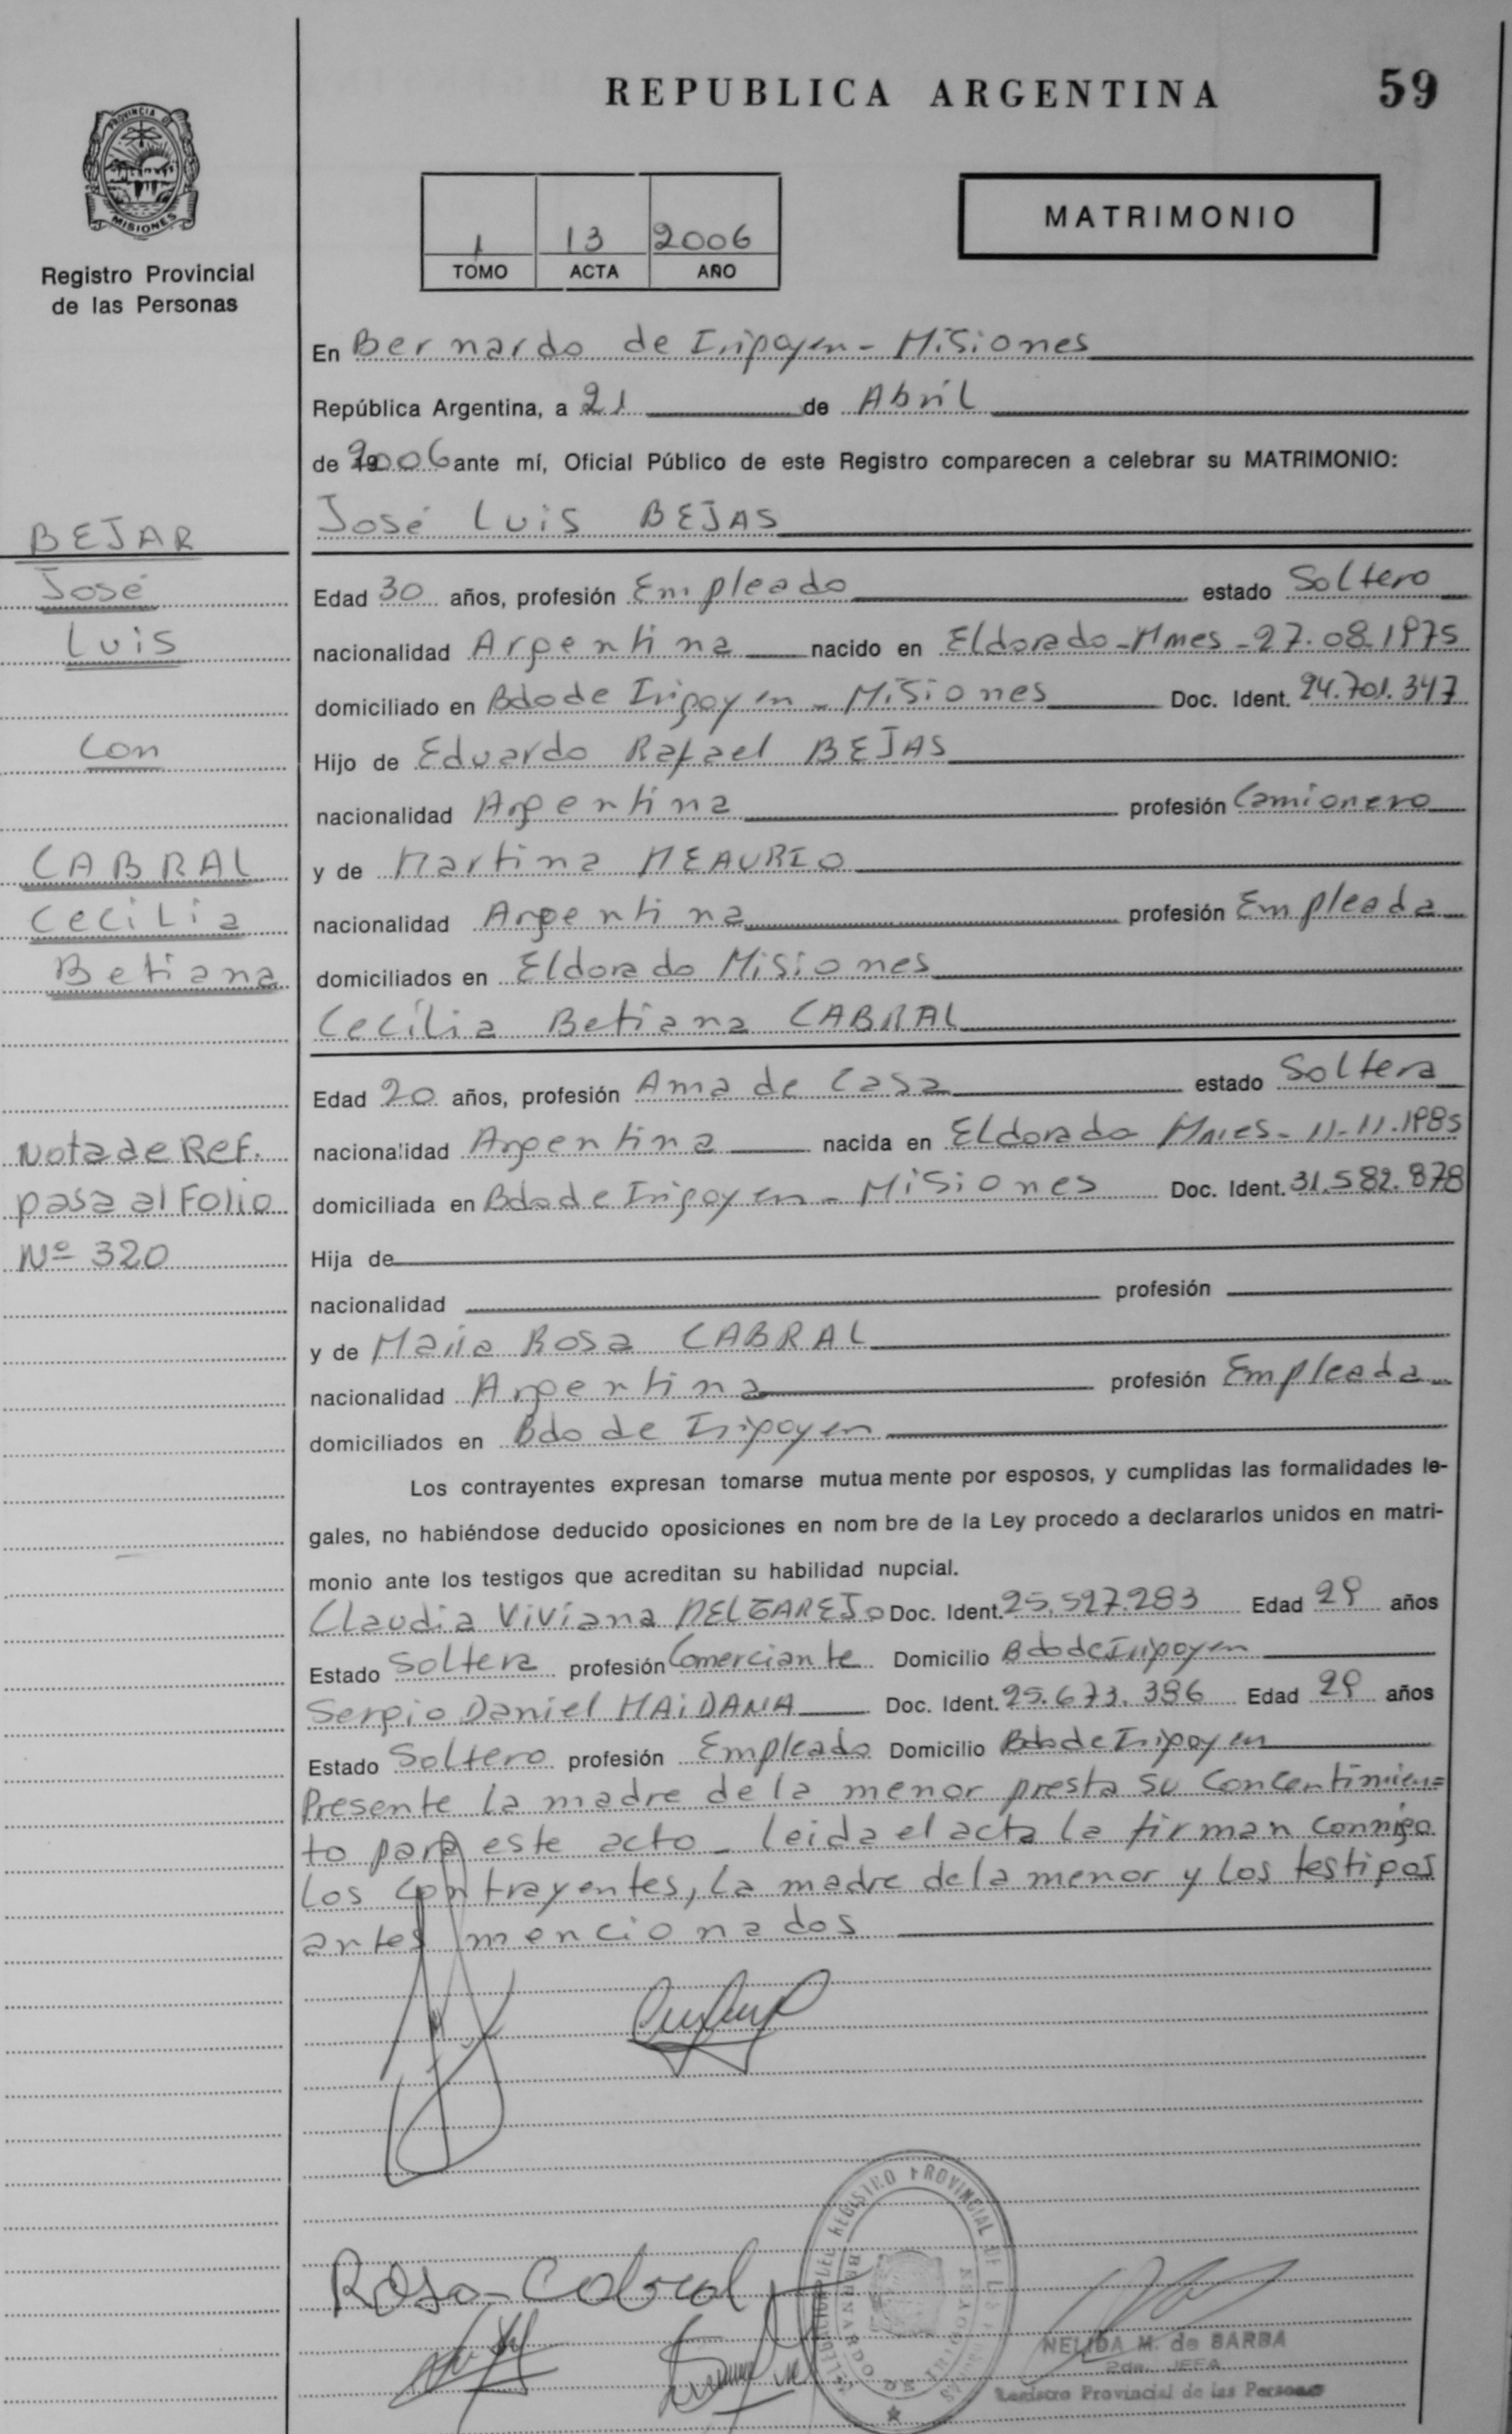 REPUBLICA ARGENTINA 59
PROVINCIA DE
MISIONES
Registro Provincial
de las Personas
1 13 2006
TOMO ACTA AÑO
MATRIMONIO
En Bernardo de Irigoyen - Misiones
República Argentina, a 21 de Abril
de 2006 ante mí, Oficial Público de este Registro comparecen a celebrar su MATRIMONIO:
José Luis BEJAS
Edad 30 años, profesión Empleado estado Soltero
nacionalidad Argentina nacido en Eldorado - Mnes - 27.08.1975
domiciliado en Bdo de Irigoyen - Misiones Doc. Ident. 24.701.347
Hijo de Eduardo Rafael BEJAS
nacionalidad Argentina profesión Camionero
y de Martina MEAURIO
nacionalidad Argentina profesión Empleada
domiciliados en Eldorado Misiones
Cecilia Betiana CABRAL
Edad 20 años, profesión Ama de Casa estado Soltera
nacionalidad Argentina nacida en Eldorado Mnes - 11-11-1985
domiciliada en Bdo de Irigoyen - Misiones Doc. Ident. 31.582.878
Hija de
nacionalidad profesión
y de María Rosa CABRAL
nacionalidad Argentina profesión Empleada
domiciliados en Bdo de Irigoyen
Los contrayentes expresan tomarse mutua mente por esposos, y cumplidas las formalidades le-
gales, no habiéndose deducido oposiciones en nom bre de la Ley procedo a declararlos unidos en matri-
monio ante los testigos que acreditan su habilidad nupcial.
Claudia Viviana MELGAREJO Doc. Ident. 25.527.283 Edad 29 años
Estado Soltera profesión Comerciante Domicilio Bdo de Irigoyen
Sergio Daniel MAIDANA Doc. Ident. 25.673.386 Edad 29 años
Estado Soltero profesión Empleado Domicilio Bdo de Irigoyen
Presente la madre de la menor presta su Concentimien=
to para este acto - leida el acta la firman conmigo
los contrayentes, la madre de la menor y los testigos
antes mencionados
BEJAR
José
Luis
con
CABRAL
Cecilia
Betiana
Nota de Ref.
pasa al Folio
Nº 320
Rosa Cabral
REGISTRO PROVINCIAL DE LAS
BERNARDO DE IRIGOYEN
NELIDA M. de BARBA
2da. JEFA
Registro Provincial de las Personas